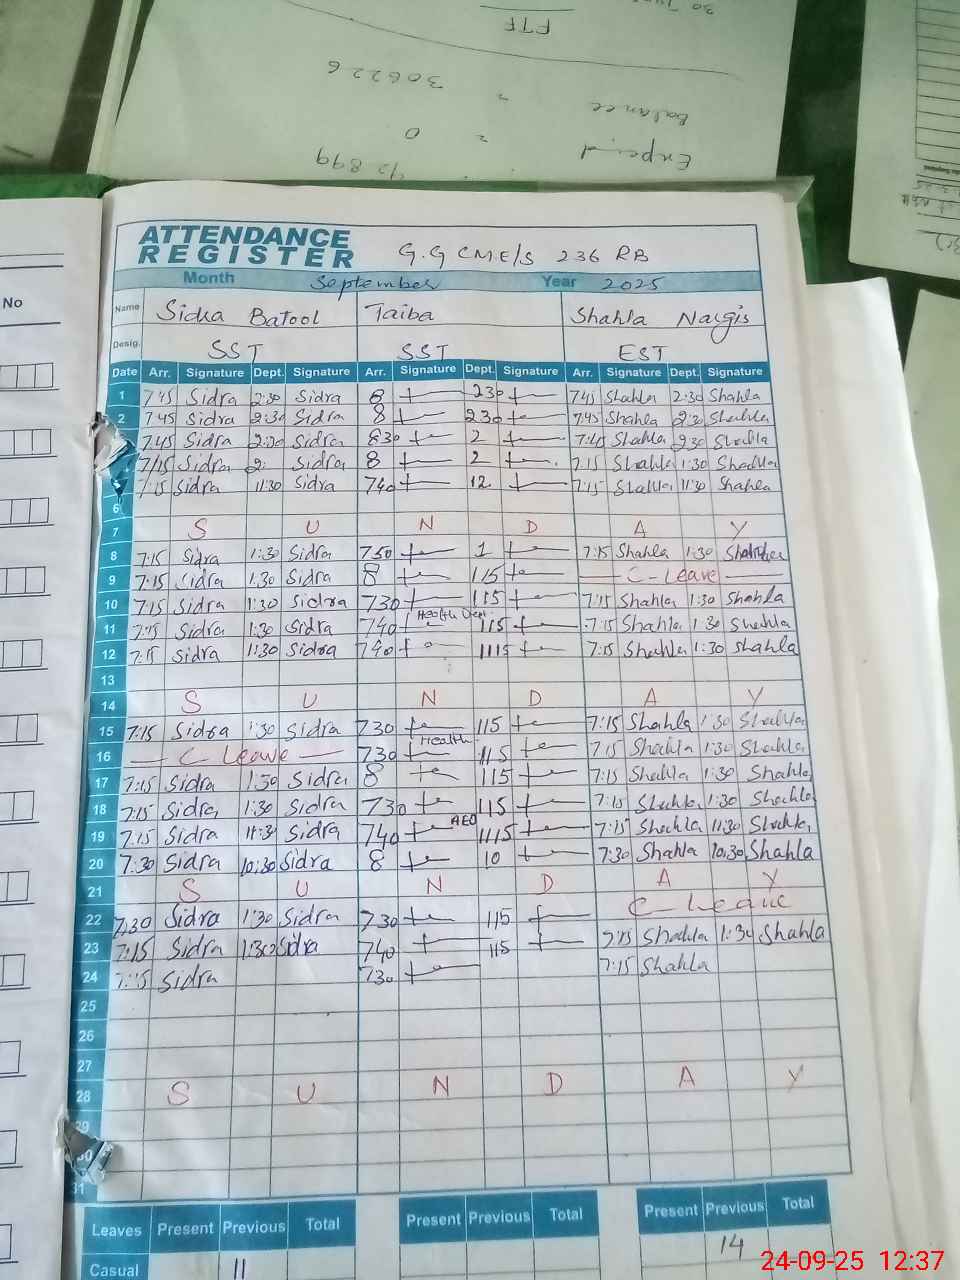 30
FTF
306226
=
Balance
= 0
Expend
42899
No
ATTENDANCE
REGISTER G.G CM.E/S 236 RB
Month September Year 2025
Name Sidra Batool Taiba Shahla Nargis
Desig. SST SST EST
Date Arr. Signature Dept. Signature Arr. Signature Dept. Signature Arr. Signature Dept. Signature
1 745 Sidra 2:30 Sidra 8 230 745 Shahla 2:30 Shahla
2 7.45 Sidra 2:30 Sidra 8 230 7:45 Shahla 2:30 Shahla
7.45 Sidra 2:30 Sidra 830 2 7:45 Shahla 2:30 Shahla
7/15 Sidra 2: Sidra 8 2 7:15 Shahla 1:30 Shahla
7:15 Sidra 11:30 Sidra 740 12 7:15 Shahla 11:30 Shahla
6
7 S U N D A Y
8 7:15 Sidra 1:30 Sidra 750 1 7:15 Shahla 1:30 Shahla
9 7:15 Sidra 1:30 Sidra 8 115 C-Leave
10 7:15 Sidra 1:30 Sidra 730 115 7:15 Shahla 1:30 Shahla
11 7:15 Sidra 1:30 Sidra 740 Health Dept. 115 7:15 Shahla 1:30 Shahla
12 7:15 Sidra 1:30 Sidra 740 1115 7:15 Shahla 1:30 Shahla
13
14 S U N D A Y
15 7:15 Sidra 1:30 Sidra 730 115 7:15 Shahla 1:30 Shahla
16 C Leave 730 Health 115 7:15 Shahla 1:30 Shahla
17 7:15 Sidra 1:30 Sidra 8 115 7:15 Shahla 1:30 Shahla
18 7:15 Sidra 1:30 Sidra 730 115 7:15 Shahla 1:30 Shahla
19 7:15 Sidra 11:30 Sidra 740 AEO 1115 7:15 Shahla 11:30 Shahla
20 7:30 Sidra 10:30 Sidra 8 10 7:30 Shahla 10:30 Shahla
21 S U N D A Y
22 7:30 Sidra 1:30 Sidra 730 115 C-Leave
23 7:15 Sidra 1:30 Sidra 740 115 7:15 Shahla 1:30 Shahla
24 7:15 Sidra 730 7:15 Shahla
25
26
27
28 S U N D A Y
29
30
31
Leaves Present Previous Total Present Previous Total Present Previous Total
Casual 11 14
24-09-25 12:37